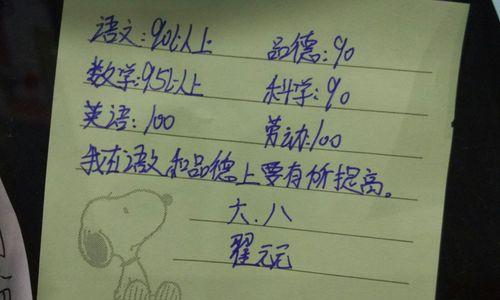 语文:90以上 品德:90
数学:95以上 科学:90
英语:100 劳动:100
我在语文和品德上要有所提高。
六.八
翟元元